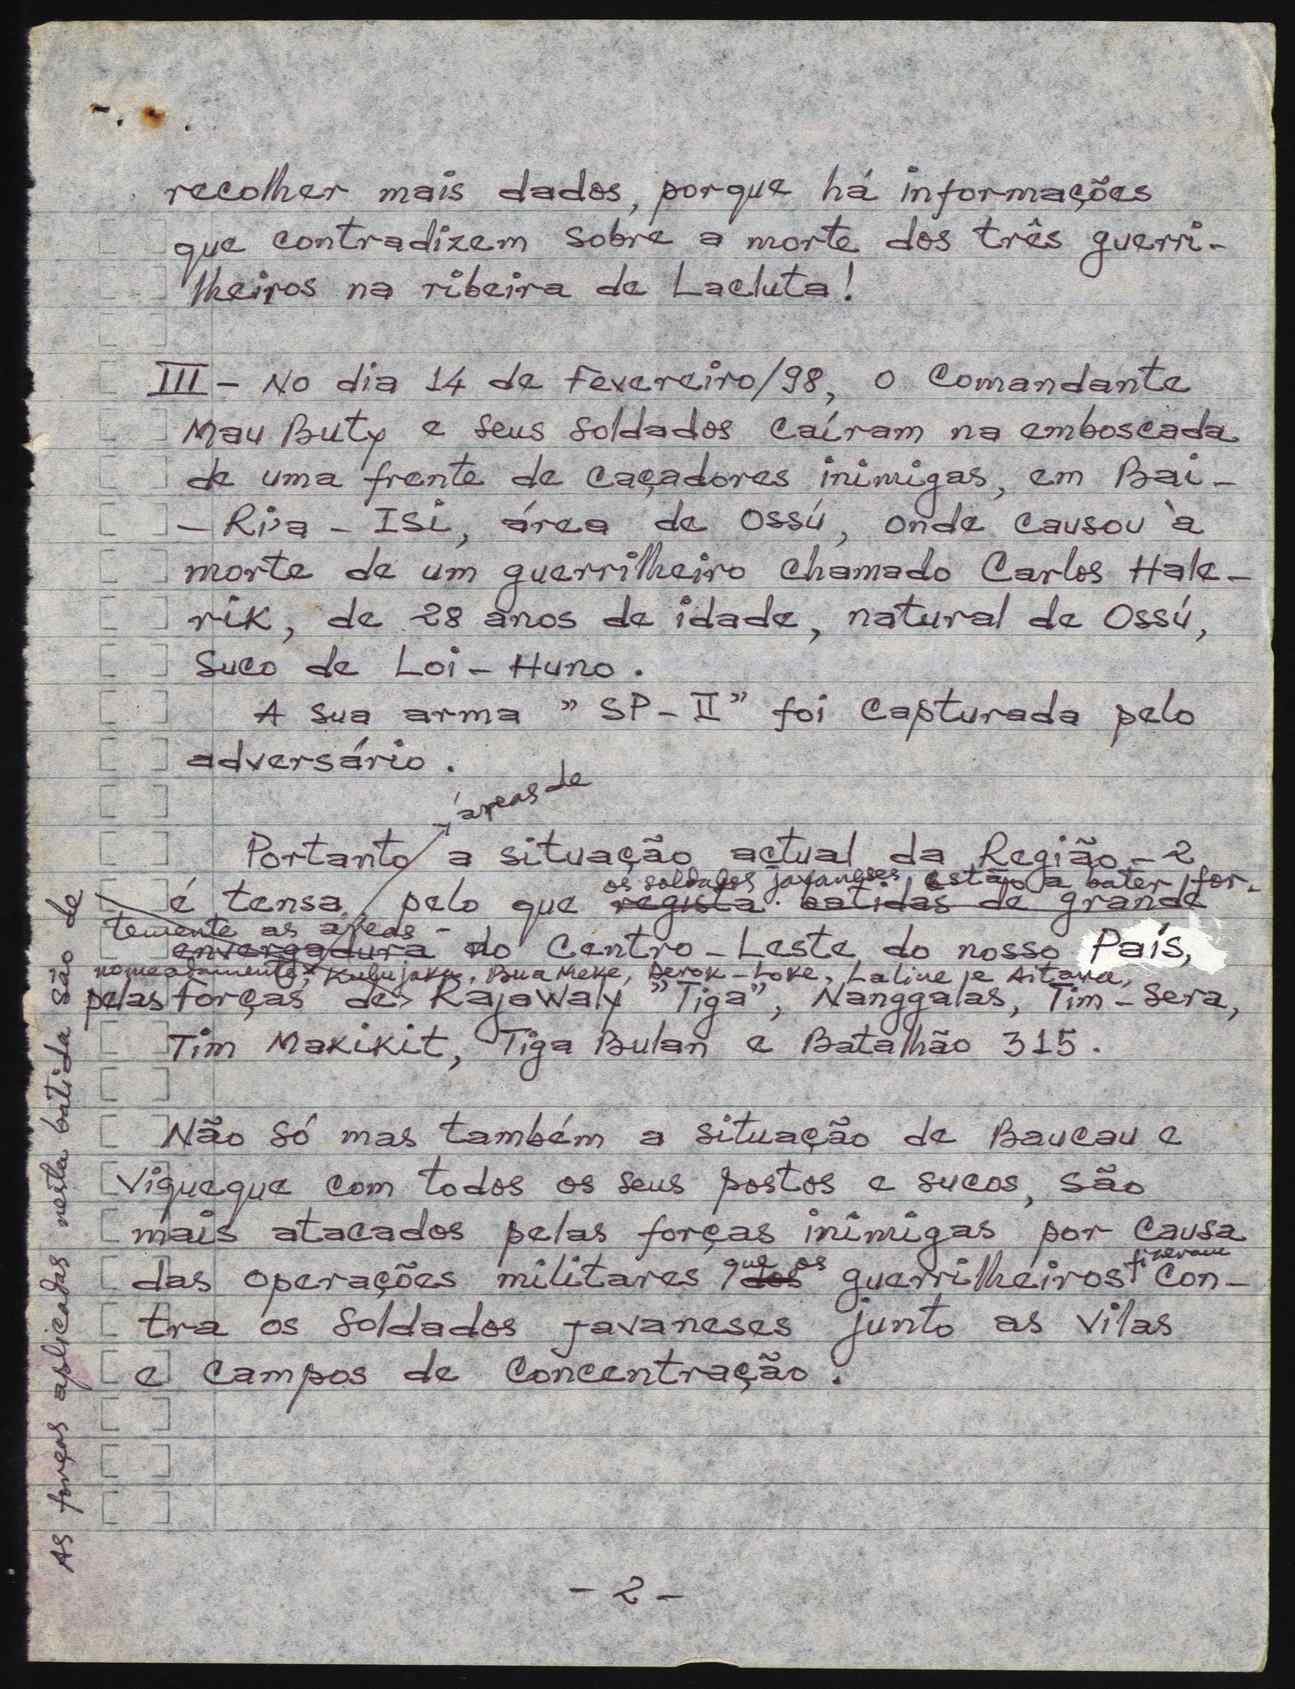 recolher mais dados, porque há informações
que contradizem sobre a morte dos três guerri-
lheiros na ribeira de Lacluta!
III - No dia 14 de Fevereiro/98, o Comandante
Mau Buty e seus soldados caíram na emboscada
de uma frente de caçadores inimigas, em Bai-
- Ria - ISi, área de Ossú, onde causou à
morte de um guerrilheiro chamado Carlos Hale-
rik, de 28 anos de idade, natural de Ossú,
Suco de Loi - Huno.
A sua arma "SP-II" foi capturada pelo
adversário.
áreas de
Portanto a situação actual da Região - 2
os soldados javaneses estão a bater for-
é tensa, pelo que regista batidas de grande
temente as áreas -
envergadura do Centro - Leste do nosso País,
nomeadamente, Kulujaku, Bua Meke, Derok - Loke, Laline e Aitana,
pelas forças de Rajawaly "Tiga", Nanggalas, Tim - Sera,
Tim Makikit, Tiga Bulan e Batalhão 315.
Não só mas também a situação de Baucau e
Viqueque com todos os seus postos e sucos, são
mais atacados pelas forças inimigas por causa
que os fizeram
das operações militares dos guerrilheiros con-
tra os soldados javaneses junto as vilas
e campos de concentração.
- 2 -
As forças aplicadas nesta batida são de